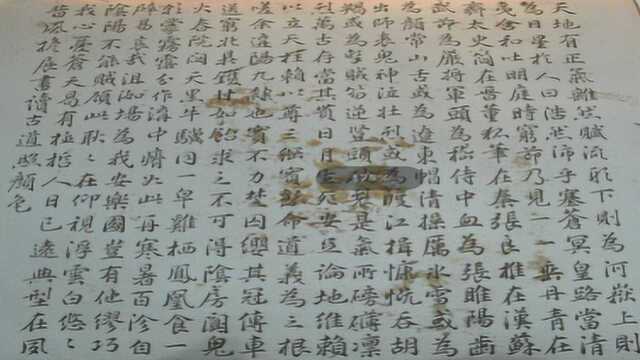 天地有正氣雜然賦流形下則為河嶽上則
為日星於人曰浩然沛乎塞蒼冥皇路當清
夷含和吐明庭時窮節乃見一一垂丹青在
齊太史簡在晉董狐筆在秦張良椎在漢蘇
武節為嚴將軍頭為嵇侍中血為張睢陽齒
為顏常山舌或為遼東帽清操厲冰雪或為
出師表鬼神泣壯烈或為渡江楫慷慨吞胡
羯或為擊賊笏逆豎頭是氣所磅礴凜
烈萬古存當其貫日月死安足論地維賴
以立天柱賴以尊三綱實繫命道義為之根
嗟余遘陽九隸也實不力楚囚纓其冠傳車
送窮北鼎鑊甘如飴求之不可得陰房闃鬼
火春院閟天黑牛驥同一皁雞棲鳳凰食一
朝蒙霧露分作溝中瘠如此再寒暑百沴自
辟易哀哉沮洳場為我安樂國豈有他繆巧
陰陽不能賊顧此耿〻在仰視浮雲白悠〻
我心憂蒼天曷有極哲人日已遠典型在夙
昔風簷展書讀古道照顏色